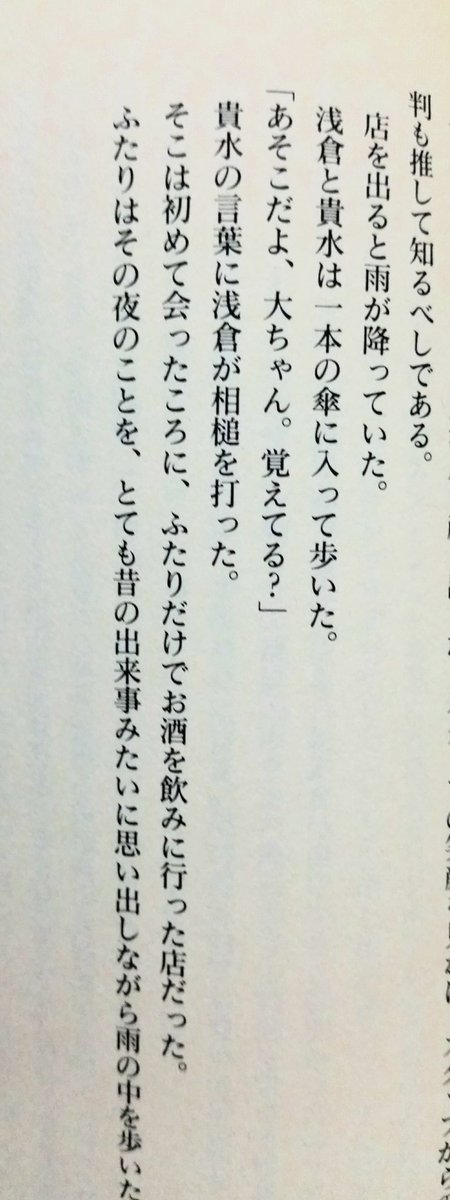 判も推して知るべしである。
店を出ると雨が降っていた。
浅倉と貴水は一本の傘に入って歩いた。
「あそこだよ、大ちゃん。覚えてる?」
貴水の言葉に浅倉が相槌を打った。
そこは初めて会ったころに、ふたりだけでお酒を飲みに行った店だった。
ふたりはその夜のことを、とても昔の出来事みたいに思い出しながら雨の中を歩いた